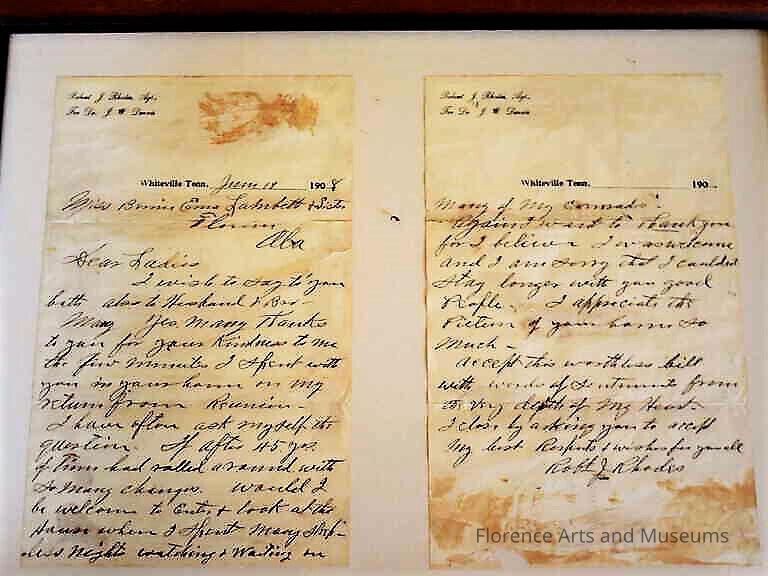 Robert J. Rhodes, Agt.,
For Dr. J. W. Dennis
Whiteville Tenn. June 18 1908
Miss Emo Lambeth & Sister
Ala
Dear Ladies
I wish to say to you
both also to Husband & Bro-
Many Yes Many Thanks
to you for your Kindness to me
the few minutes I spent with
you in your home on my
return from Reunion-
I have often ask myself the
question. If after 45 yrs.
of Time had rolled around with
so many changes. would I
be welcome to Enter & look at the
House when I spent many sleep-
less Night watching & Waiting on
Robert J. Rhodes, Agt.,
For Dr. J. W. Dennis
Whiteville Tenn. 190
Many of My Comrads.
Again I want to thank you
for I believe I was welcome
and I am sorry that I couldent
stay longer with you good
People. I appreciate the
Picture of your home so
much-
accept this worthless bill
with words of Sentiment from
the very depth of My Heart-
I close by asking you to accept
My best Respects & wishes for you all
Robt J. Rhodes
Florence Arts and Museums